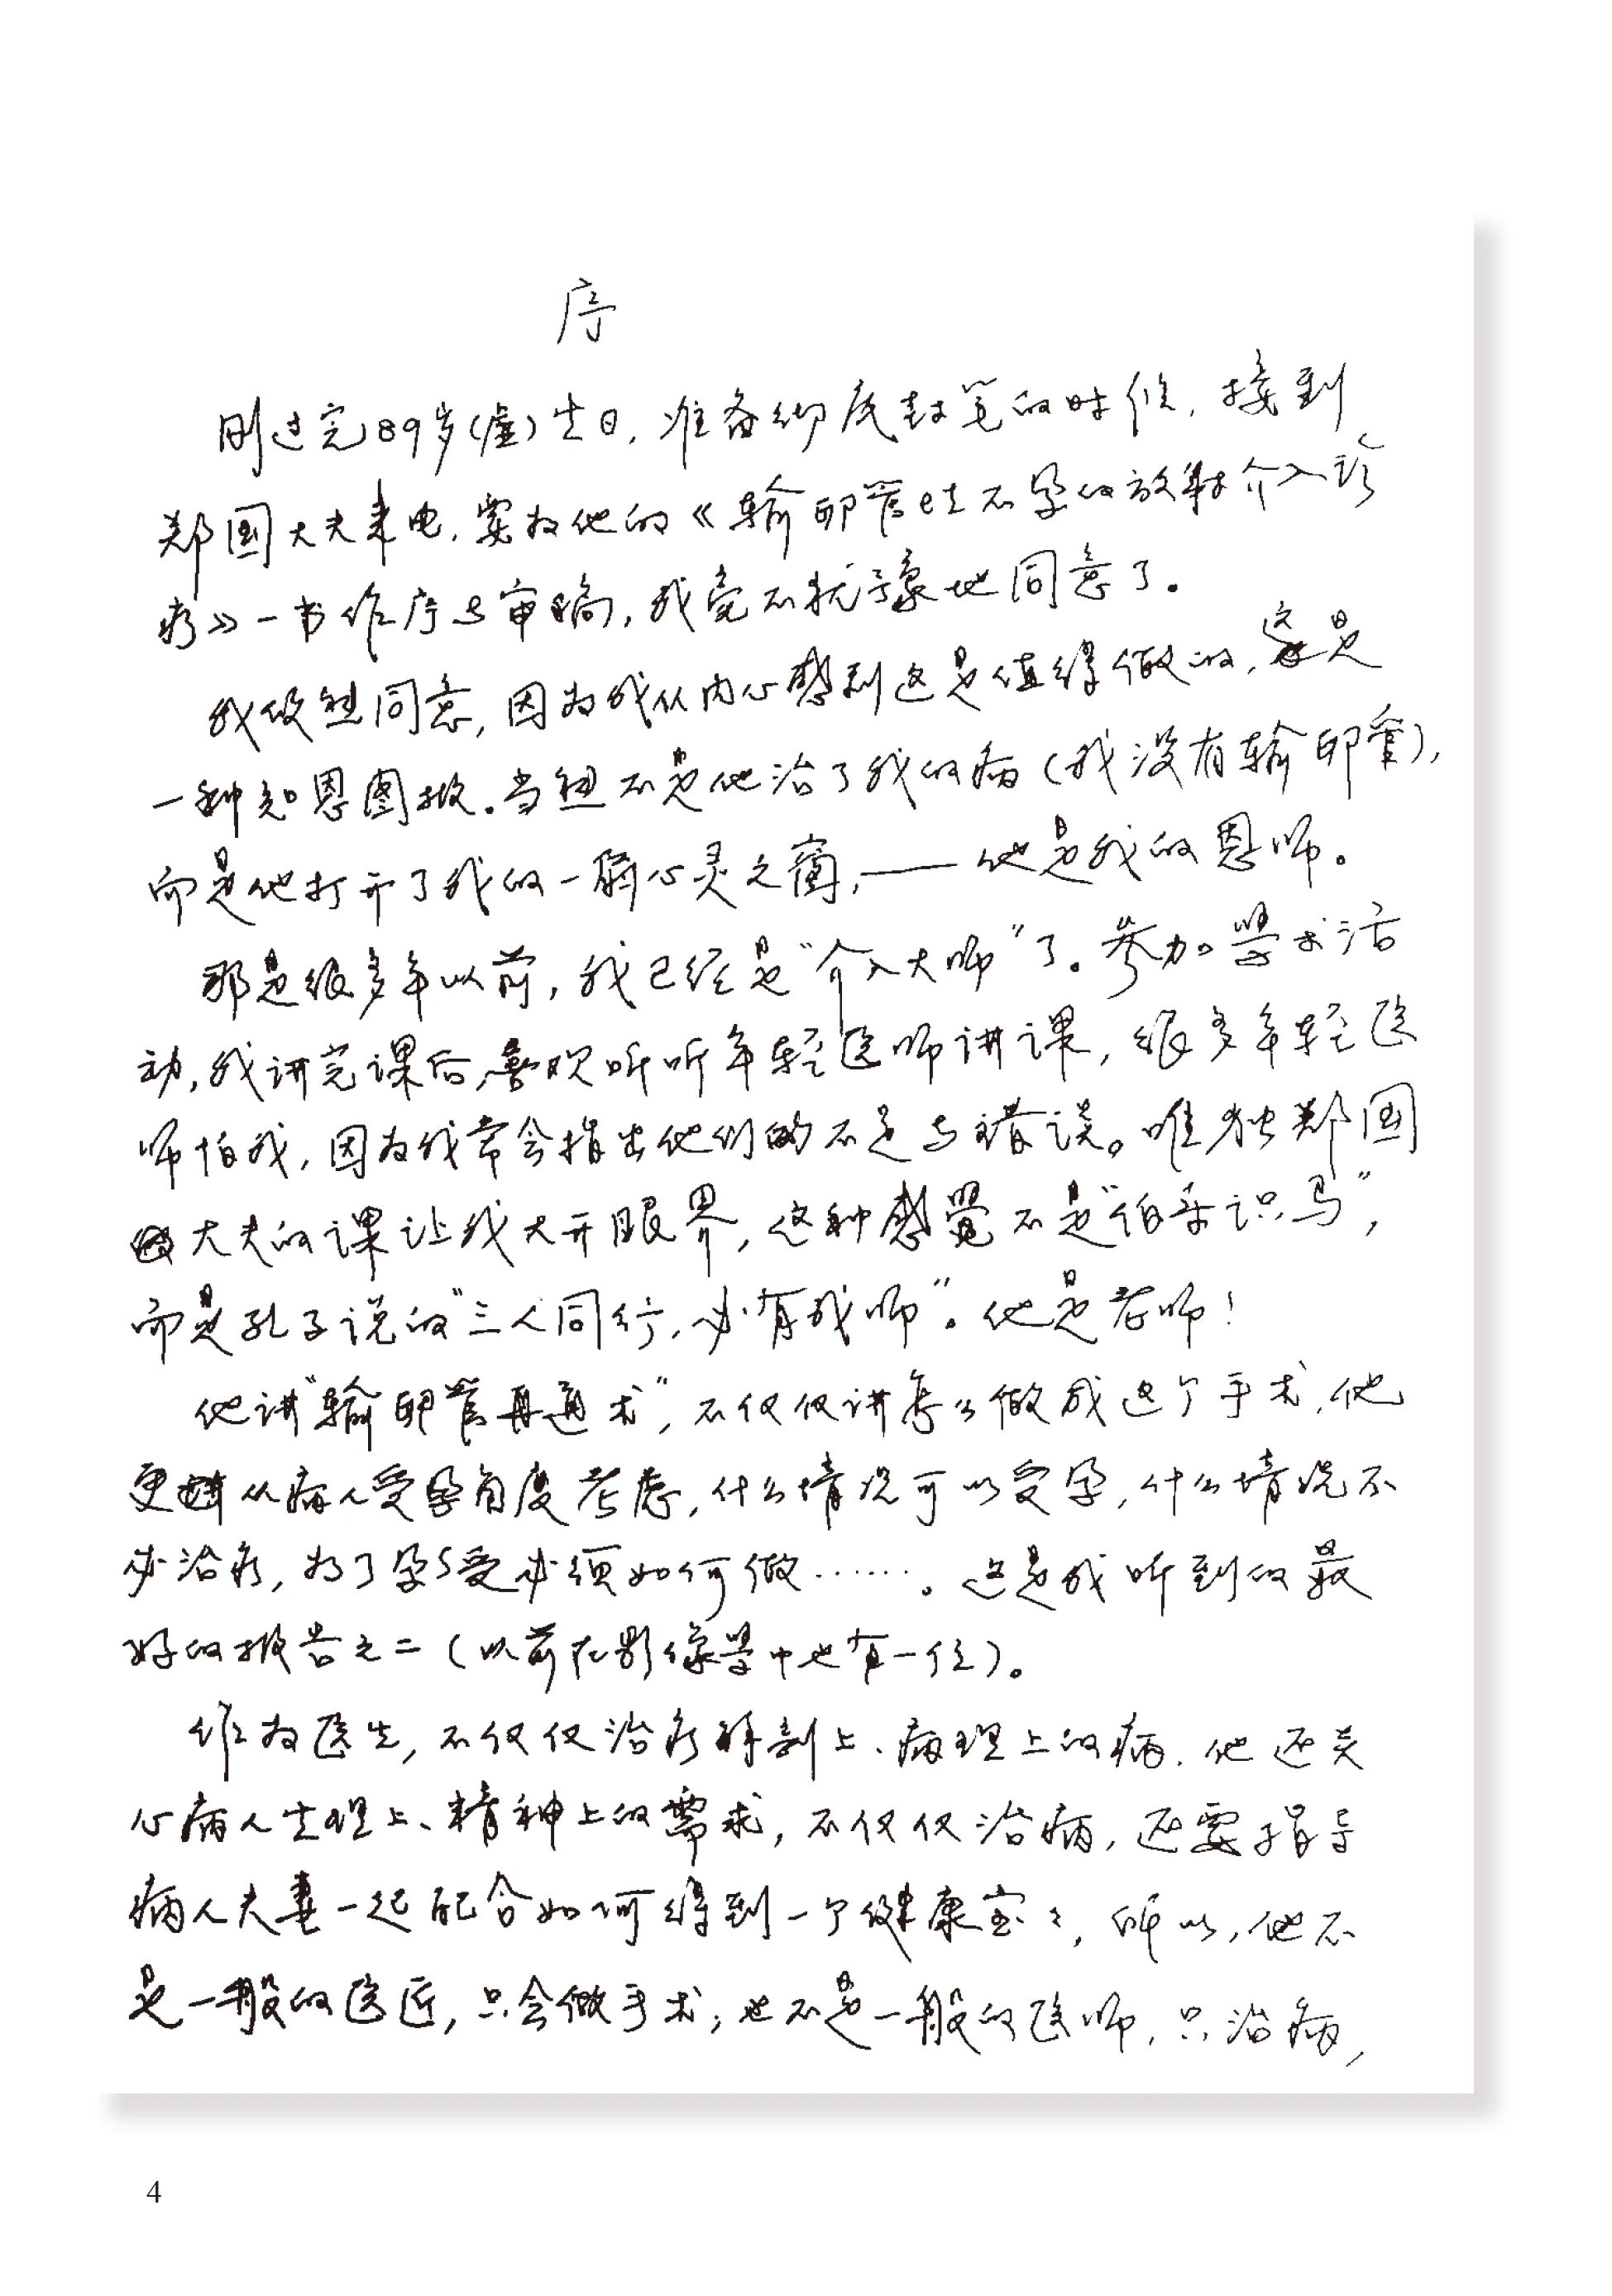 序
刚过完89岁(虚)生日，准备彻底封笔的时候，接到
郑国大夫来电，要为他的《输卵管性不孕的放射介入诊
疗》一书作序与审稿，我毫不犹豫地同意了。
我欣然同意，因为我从内心感到这是值得做的，这是
一种知恩图报。当然不是他治了我的病（我没有输卵管），
而是他打开了我的一扇心灵之窗，——他是我的恩师。
那是很多年以前，我已经是“介入大师”了。参加学术活
动，我讲完课后，喜欢听听年轻医师讲课，很多年轻医
师怕我，因为我常会指出他们的不足与错误。唯独郑国
大夫的课让我大开眼界，这种感觉不是“伯乐识马”，
而是孔子说的“三人同行，必有我师”。他是老师！
他讲“输卵管再通术”，不仅仅讲怎么做成这个手术，他
更从病人受孕角度考虑，什么情况可以受孕，什么情况不
必治疗，为了孕受必须如何做……。这是我听到的最
好的报告之二（以前在影像学中也有一位）。
作为医生，不仅仅治疗解剖上、病理上的病，他还关
心病人生理上、精神上的需求，不仅仅治病，还要指导
病人夫妻一起配合如何得到一个健康宝宝，所以，他不
是一般的医匠，只会做手术；也不是一般的医师，只治病，
4